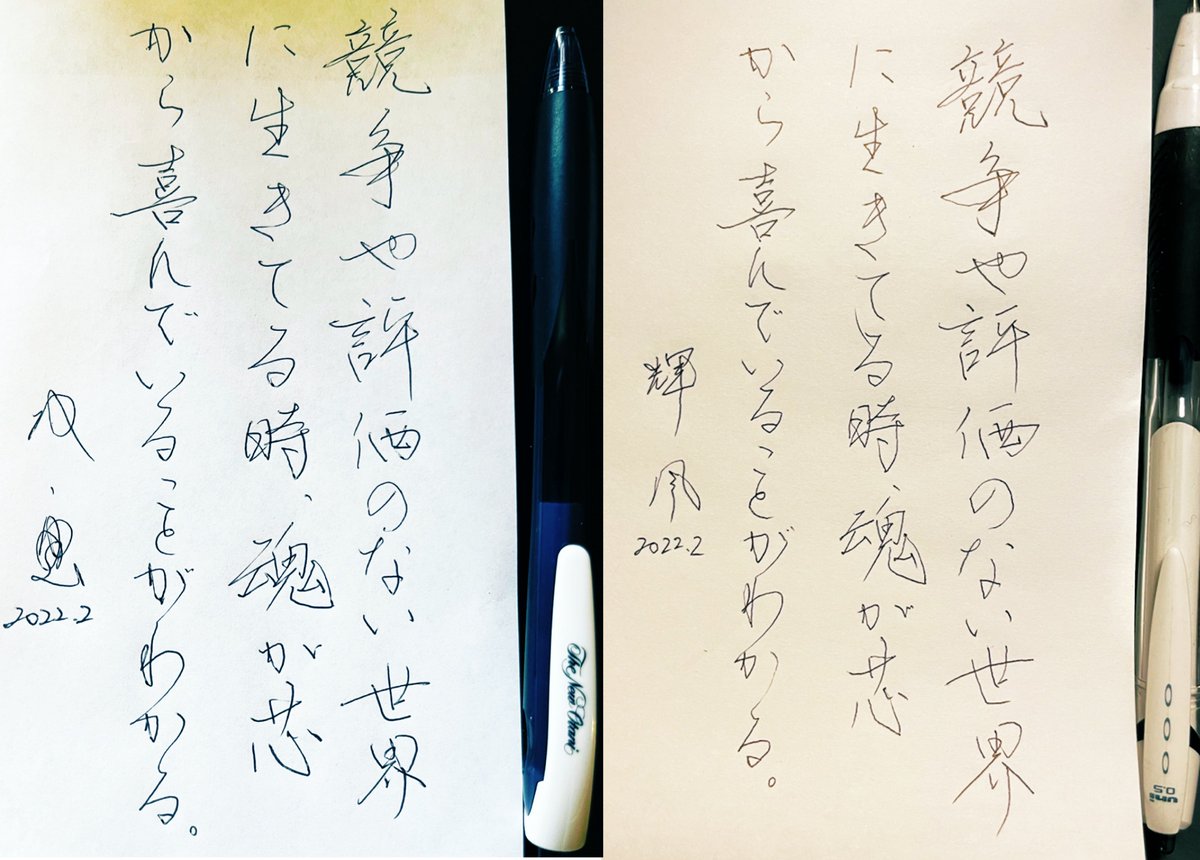 競争や評価のない世界
に生きてる時、魂が芯
から喜んでいることがわかる。
2022.2
The New Otani
競争や評価のない世界
に生きてる時、魂が芯
から喜んでいることがわかる。
輝凧
2022.2
uni
0.5